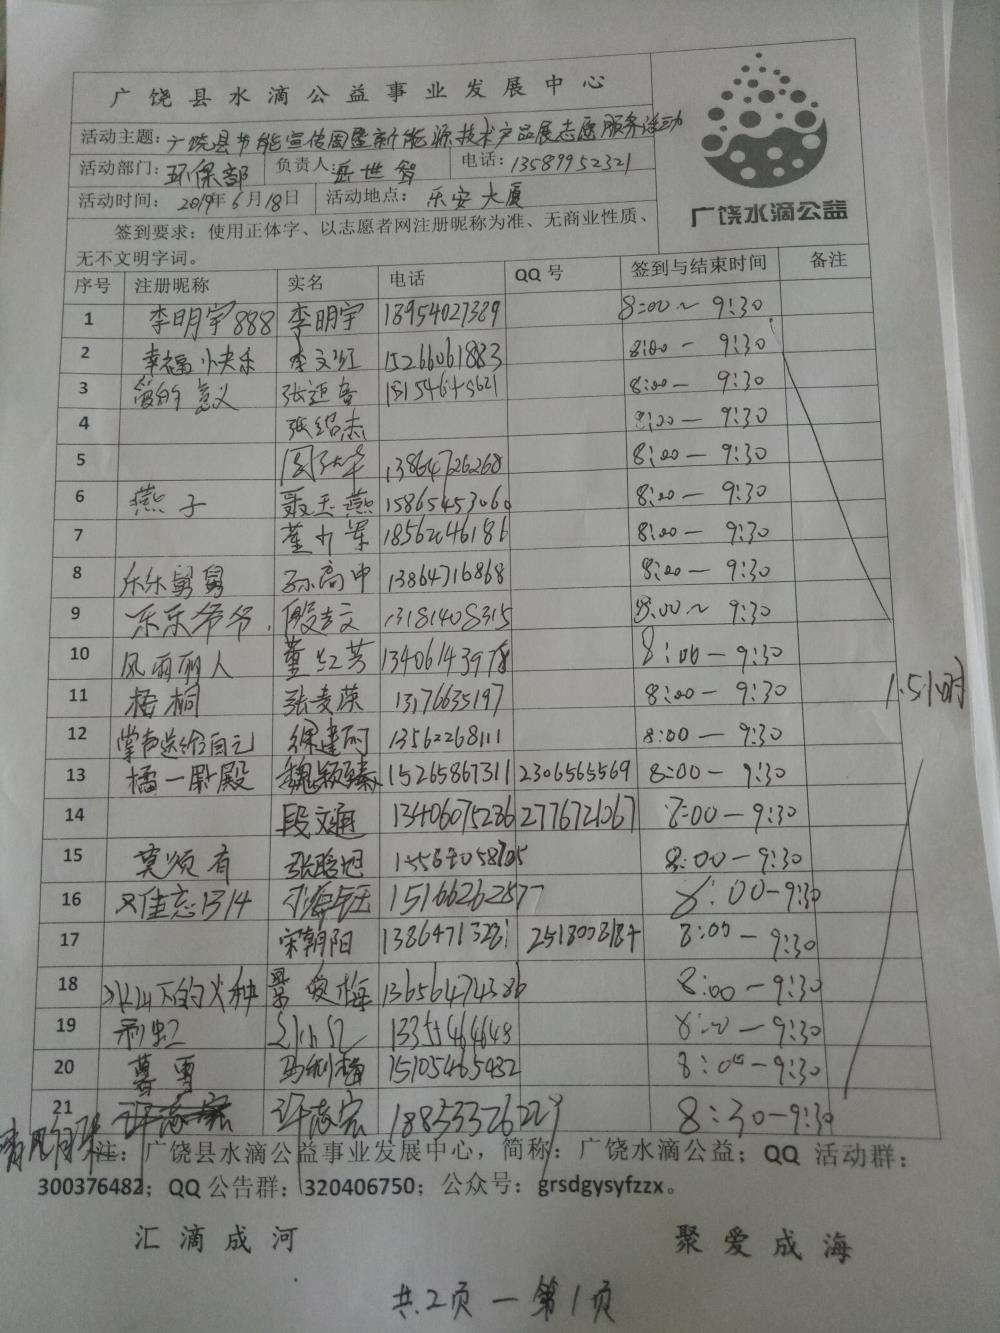 广饶县水滴公益事业发展中心
活动主题：广饶县节能宣传周暨新能源技术产品展志愿服务活动
活动部门：环保部 负责人 世智 电话：13589952321
活动时间：2019年6月18日 活动地点：乐安大厦
广饶水滴公益
签到要求：使用正体字、以志愿者网注册昵称为准、无商业性质、
无不文明字词。
序号 注册昵称 实名 电话 QQ号 签到与结束时间 备注
1 李明宇888 李明宇 18954027389 8:00～9:30
2 幸福小快乐 李文红 15266061883 8:00－9:30
3 简的意义 张迎春 8:00－9:30
4 张绍杰 8:00－9:30
5 13864726268 8:00－9:30
6 燕子 聂玉燕 15865453060 8:00－9:30
7 董小军 18562046186 8:00－9:30
8 乐乐舅舅 孙高中 13864716868 8:00－9:30
9 乐乐爷爷. 殷吉文 13181408315 8:00～9:30
10 风雨雨人 董红芳 13406143978 8:00－9:30
11 梧桐 张麦荣 13176635197 8:00－9:30
1.5小时
12 掌声送给自己 徐建 13562268111 8:00－9:30
13 橘一尉殿 魏颖臻 15265867311 2306565569 8:00－9:30
14 段文通 13406075236 2776721067 8:00－9:30
15 莫须有 张晗旭 8:00－9:30
16 又佳恋1314 15166262877 8:00－9:30
17 宋朝阳 13864713281 2518008184 8:00－9:30
18 冰山下的火种 俊梅 13656474386 8:00－9:30
19 利虹 13355464648 8:00－9:30
20 暮雪 马利梅 15105465982 8:00－9:30
21 许志宏 许志宏 8:30－9:30
清风
注：广饶县水滴公益事业发展中心，简称：广饶水滴公益；QQ 活动群：
300376482；QQ公告群：320406750；公众号：grsdgysyfzzx。
汇滴成河 聚爱成海
共2页－第1页